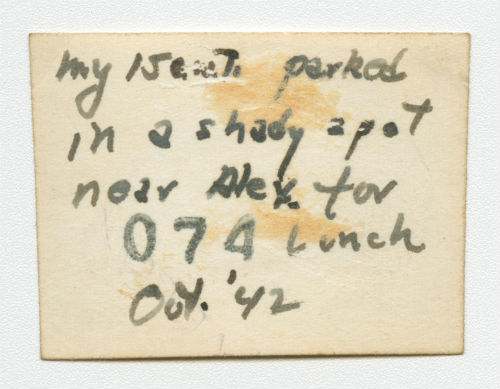 my 15 cwt. parked
in a shady spot
near Alex. for
074 lunch
Oct. '42